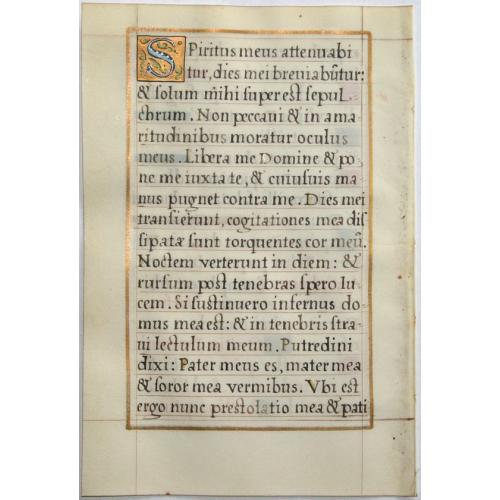 Spiritus meus attenuabi
tur, dies mei breviabũtur:
& solum mihi superest sepul-
chrum. Non peccavi & in ama
ritudinibus moratur oculus
meus. Libera me Domine & po
ne me iuxta te, & cuiusuis ma
nus pugnet contra me. Dies mei
transierunt, cogitationes mea dis
sipatæ sunt torquentes cor meũ.
Noctem verterunt in diem: &
rursum post tenebras spero lu
cem. Si sustinuero infernus do
mus mea est: & in tenebris stra
ui lectulum meum. Putredini
dixi: Pater meus es, mater mea
& soror mea vermibus. Vbi est
ergo nunc prestolatio mea & pati